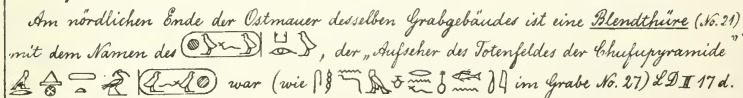 Am nördlichen Ende der Ostmauer desselben Grabgebäudes ist eine Blendthüre (No. 21)
mit dem Namen des , der „Aufseher des Totenfeldes der Chufupyramide"
war (wie im Grabe No. 27) LD II 17 d.